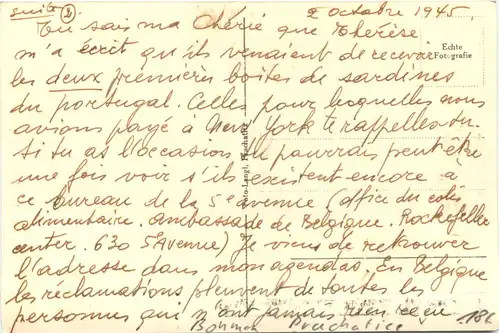 suite 2
2 octobre 1945.
Tu sais ma Chérie que Thérèse
m'a écrit qu'ils venaient de recevoir
les deux premières boîtes de sardines
du portugal. Celles pour lesquelles nous
avions payé à New York te rappelles-tu.
Si tu as l'occasion tu pourrais peut être
une fois voir s'ils existent encore à
ce bureau de la 5e avenue (office du colis
alimentaire. ambassade de Belgique. Rockefeller
center. 630 5 Avenue) Je viens de retrouver
l'adresse dans mon agenda. En Belgique
les réclamations pleuvent de toutes les
personnes qui n'ont jamais rien reçu
Echte
Fotografie
Böhmen Prachatice
186